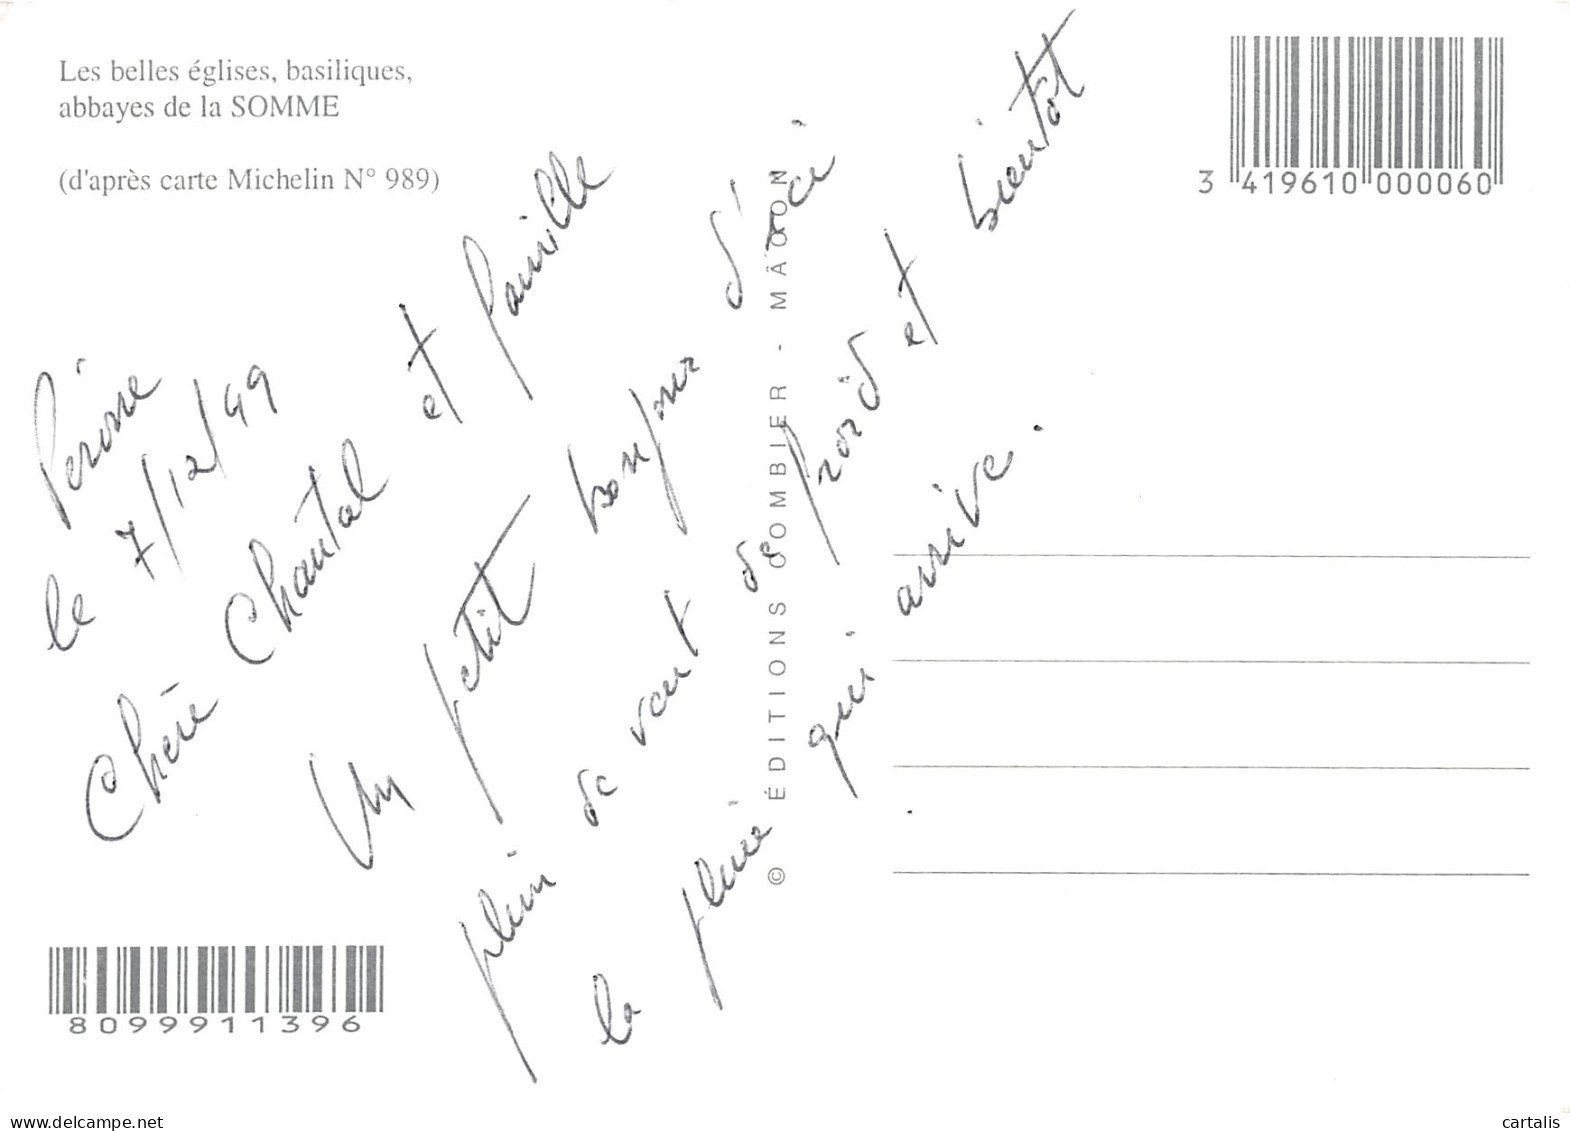 Les belles églises, basiliques,
abbayes de la SOMME
(d'après carte Michelin N° 989)
3 419610 000060
le 7/12/99
Chère Chantal et famille
Un petit bonjour d'ici
plein de vent de froid et bientôt
la pluie qui arrive.
© ÉDITIONS COMBIER - MÂCON
8099911396
www.delcampe.net
cartalis